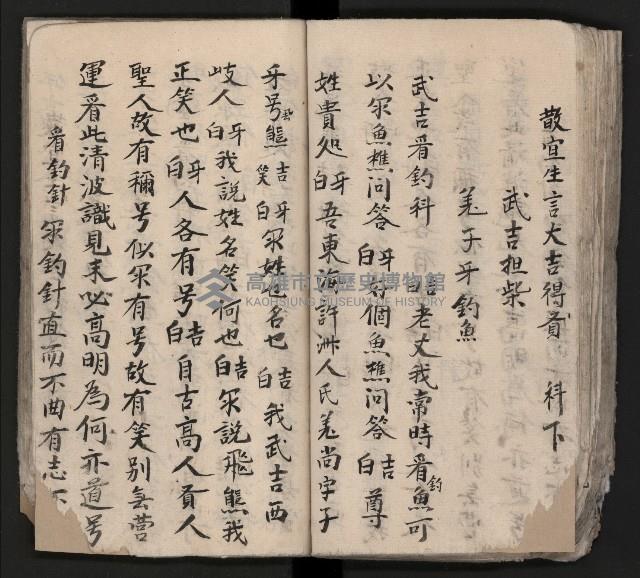 散宜生言大吉得賢 科下
武吉担柴
羌子牙釣魚
武吉看釣科 吉白老丈我常時看釣魚可
以尔魚樵問答 牙白好個魚樵問答 吉白尊
姓貴処 牙白吾東海許洲人氏羌尚字子
牙号飛熊 吉笑 牙白尔姓也名也 吉白我武吉西
岐人 牙白我説姓名笑何也 吉白尔説飛熊我
正笑也 牙白人各有号 吉白自古高人賢人
聖人故有稱号似尔有号故有笑别無
運看此清波識見未必高明為何亦道号
看釣針 尔釣針直而不曲有志
高雄市立歷史博物館
KAOHSIUNG MUSEUM OF HISTORY